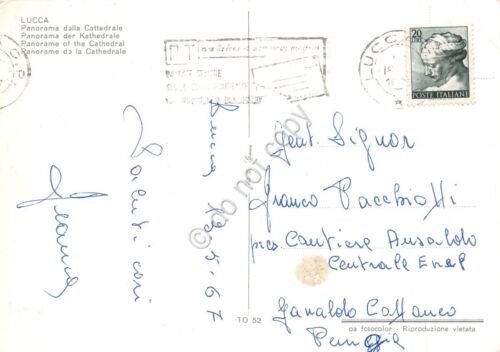 LUCCA
Panorama dalla Cattedrale
Panorama der Kathedrale
Panorame of the Cathedral
Panorame de la Cathedrale
PT
20
LIRE
POSTE ITALIANE
LUCCA
do not copy
Lucca 19-5-67
Saluti cari
Franca
Gent. Signor
Franco Pacchiotti
pres. Cantiere Ansaldo
Centrale Enel
Gualdo Cattaneo
Perugia
TO 52
da fotocolor - Riproduzione vietata